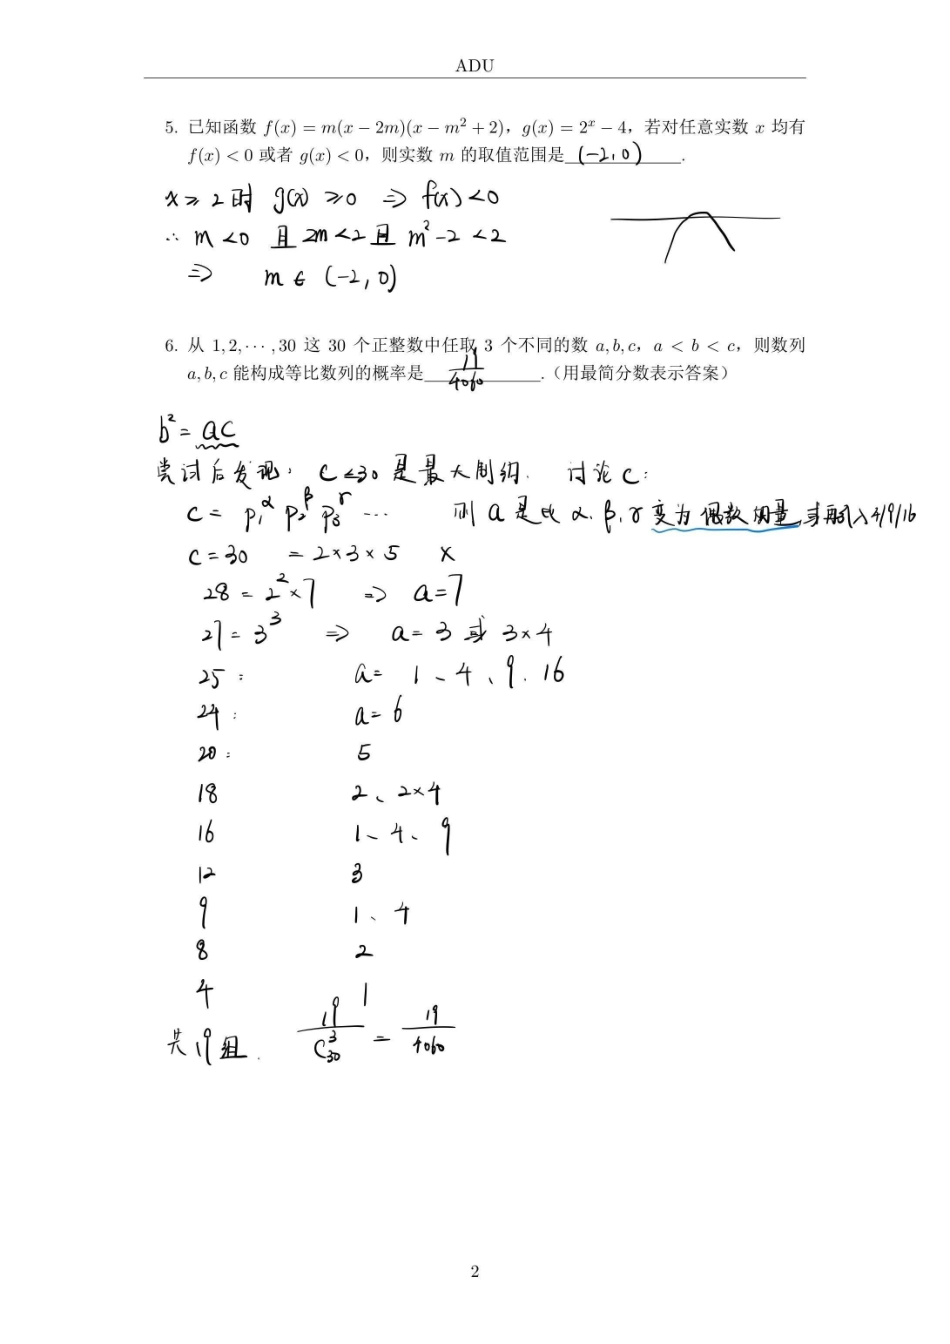 ADU
5. 已知函数 f(x) = m(x − 2m)(x − m² + 2)，g(x) = 2ˣ − 4，若对任意实数 x 均有
f(x) < 0 或者 g(x) < 0，则实数 m 的取值范围是 (-2,0) .
x ≥ 2时 g(x) ≥0 ⇒ f(x)<0
∴ m<0 且 2m<2 且 m²-2 <2
⇒ m ∈ (-2, 0)
6. 从 1, 2, ⋯ , 30 这 30 个正整数中任取 3 个不同的数 a, b, c，a < b < c，则数列
a, b, c 能构成等比数列的概率是 19/4060 .（用最简分数表示答案）
b² = ac
尝试后发现， c≤30 是最大制约. 讨论 c:
c = p₁^α p₂^β p₃^γ ⋯ 则 a 是把 α、β、γ 变为偶数用量,或再引入4/9/16
c=30 = 2×3×5 ×
28 = 2²×7 ⇒ a=7
27 = 3³ ⇒ a= 3 或 3×4
25 : a= 1、4、9、16
24 : a= 6
20 : 5
18 2、2×4
16 1、4、9
12 3
9 1、4
8 2
4 1
共19组. 19/C₃₀³ = 19/4060
2